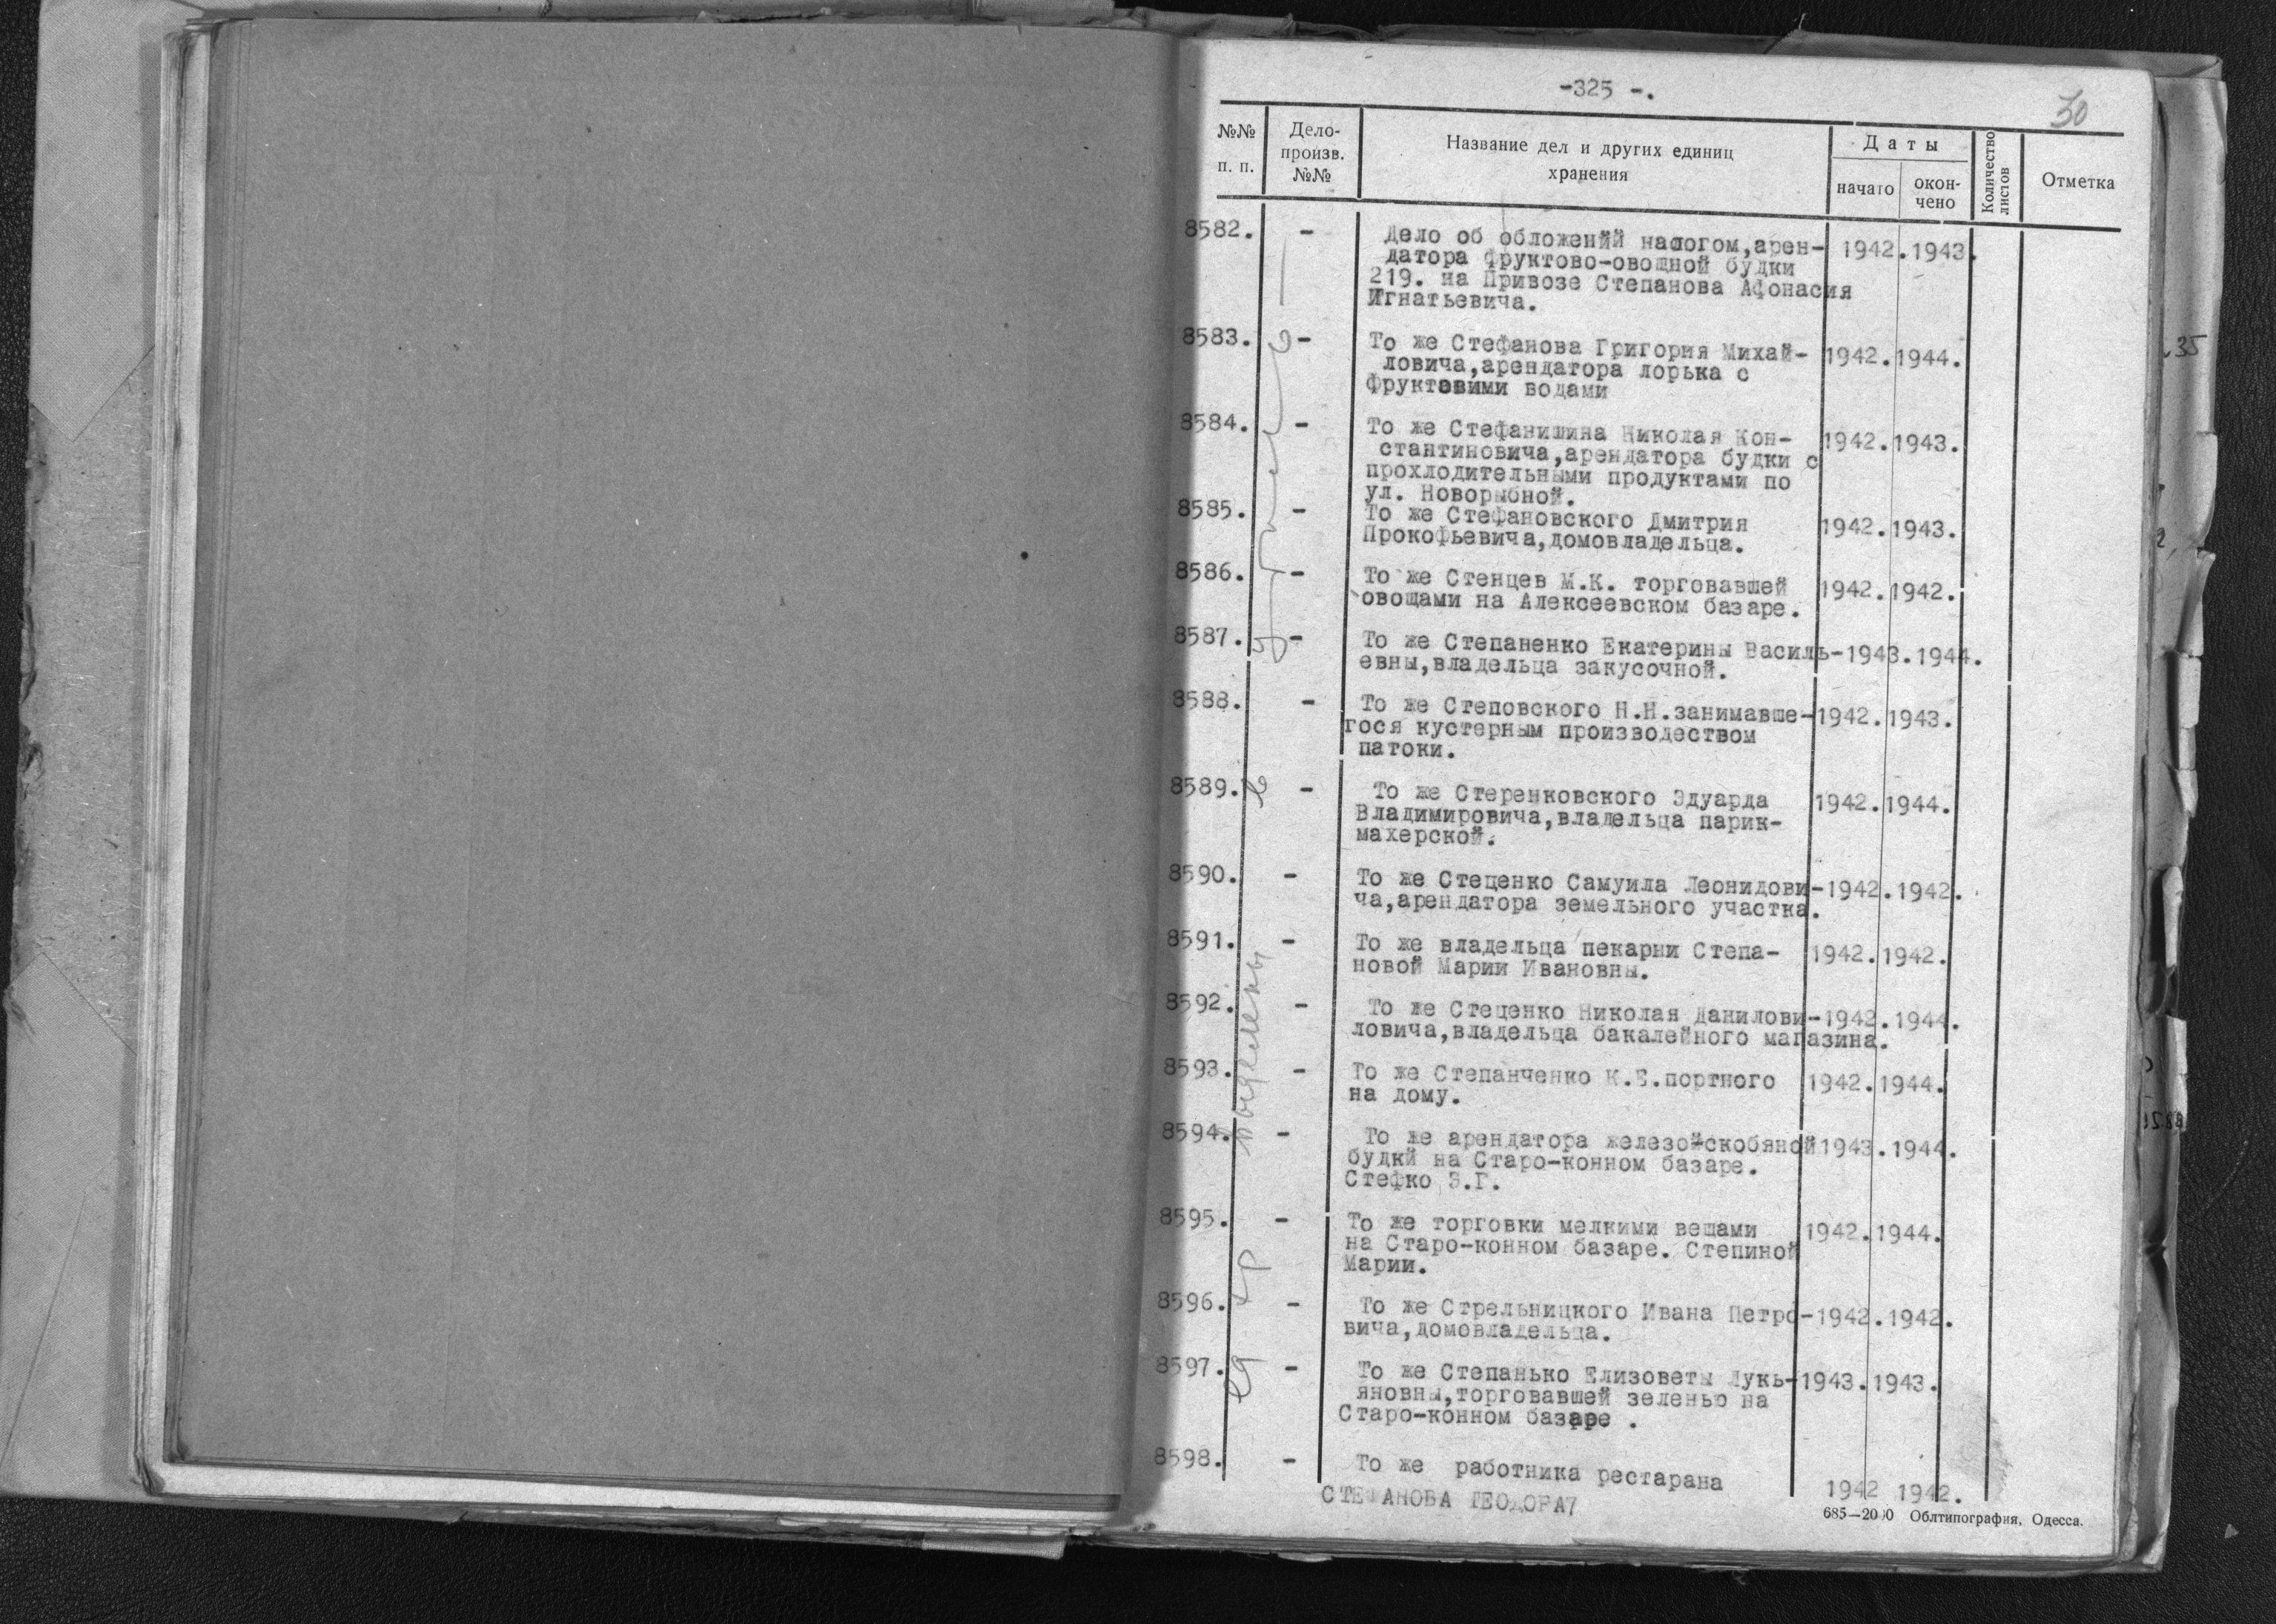 -325 -.
30
№№ п. п.
Дело-произв. №№
Название дел и других единиц хранения
Даты
начато
окончено
Количество листов
Отметка
8582. - Дело об обложений налогом,арен- 1942.1943.
датора фруктово-овощной будки
219. на Привозе Степанова Афонасия
Игнатьевича.
8583. - То же Стефанова Григория Михай- 1942.1944.
ловича,арендатора лорька с
фруктовими водами
8584. - То же Стефанишина Николая Кон- 1942.1943.
стантиновича,арендатора будки с
прохлодительными продуктами по
ул. Новорыбной.
8585. - То же Стефановского Дмитрия 1942.1943.
Прокофьевича,домовладельца.
8586. - То же Стенцев М.К. торговавшей 1942.1942.
овощами на Алексеевском базаре.
8587. - То же Степаненко Екатерины Василь-1943.1944.
евны,владельца закусочной.
8588. - То же Степовского Н.Н.занимавше-1942.1943.
гося кустерным производеством
патоки.
8589. - То же Стеренковского Эдуарда 1942.1944.
Владимировича,владельца парик-
махерской.
8590. - То же Стеценко Самуила Леонидови-1942.1942.
ча,арендатора земельного участка.
8591. - То же владельца пекарни Степа- 1942.1942.
новой Марии Ивановны.
8592. - То же Стеценко Николая Данилови-1942.1944.
ловича,владельца бакалейного магазина.
8593. - То же Степанченко К.Е.портного 1942.1944.
на дому.
8594. - То же арендатора железо-скобяной 1943.1944.
будки на Старо-конном базаре.
Стефко Э.Г.
8595. - То же торговки мелкими вещами 1942.1944.
на Старо-конном базаре. Степиной
Марии.
8596. - То же Стрельницкого Ивана Петро-1942.1942.
вича,домовладельца.
8597. - То же Степанько Елизоветы Лукь-1943.1943.
яновны,торговавшей зеленью на
Старо-конном базаре .
8598. - То же работника рестарана 1942 1942.
СТЕФАНОВА ТЕОДОРА7
685—2000 Облтипография, Одесса.
35